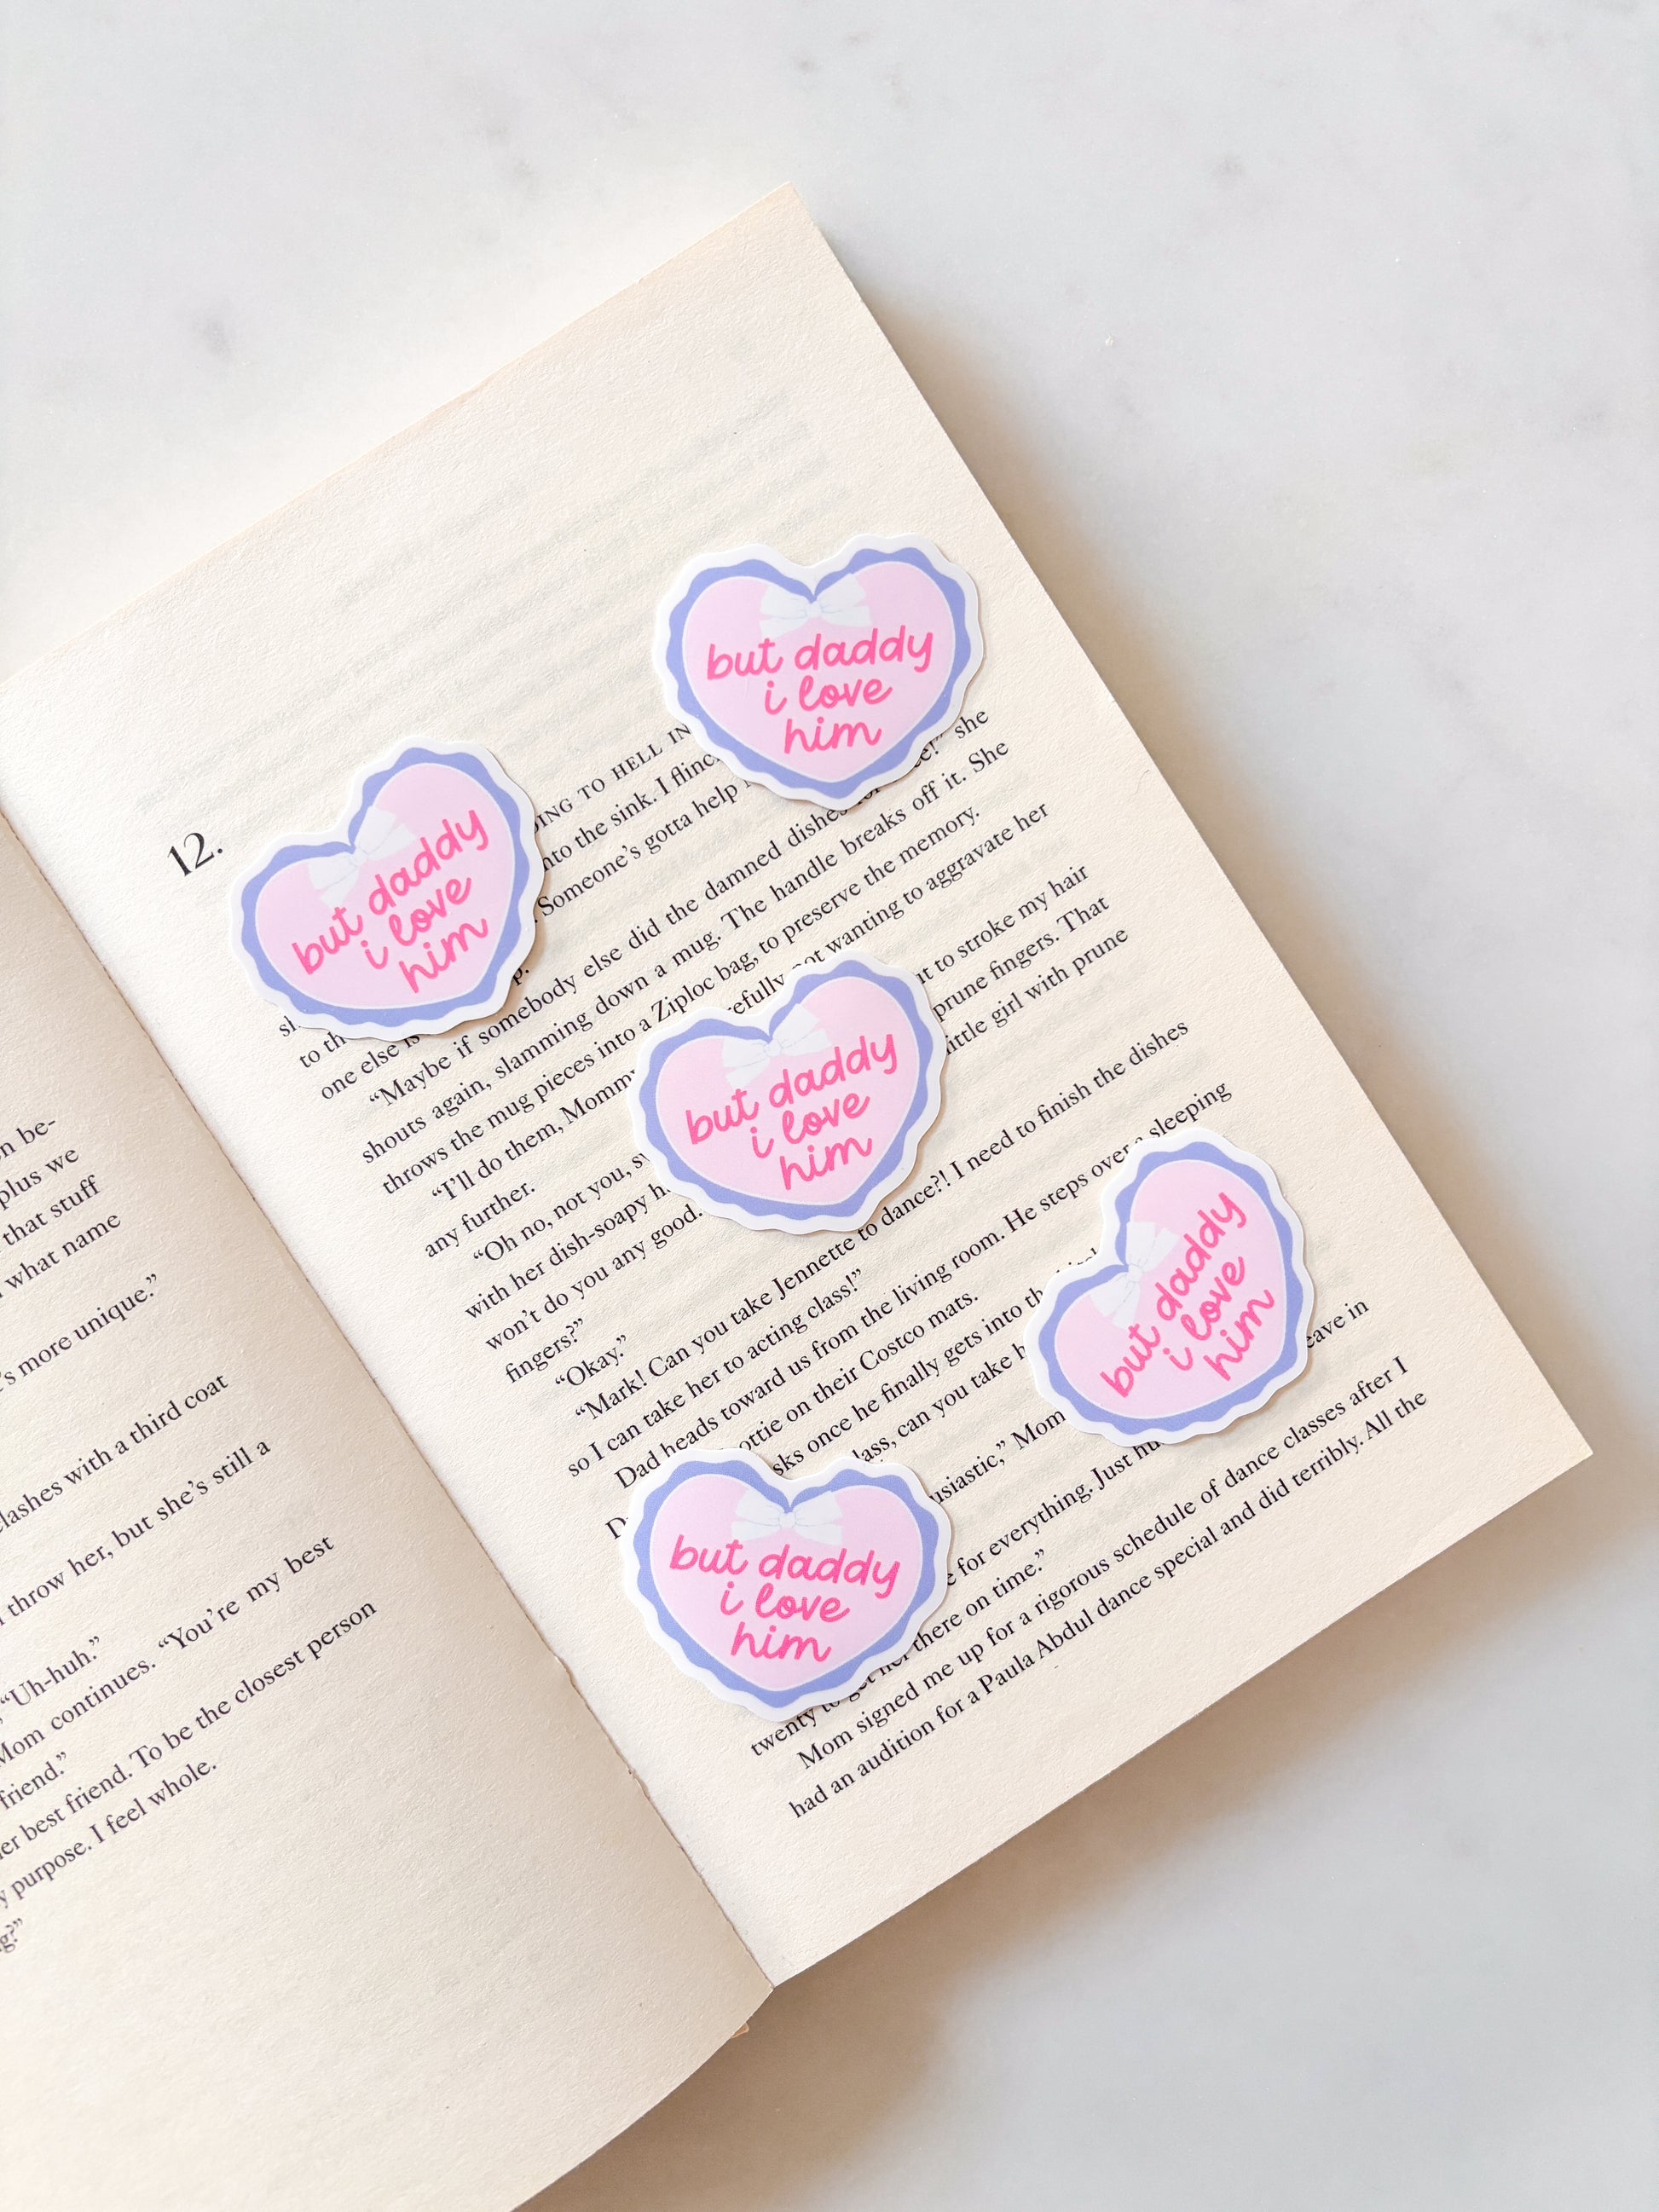 on be-
plus we
that stuff
what name
’s more unique.”
lashes with a third coat
throw her, but she’s still a
“Uh-huh.”
Mom continues. “You’re my best
friend.”
best friend. To be the closest person
purpose. I feel whole.
12.
TO HELL IN
into the sink. I
Someone’s gotta help
she
to
one else
“Maybe if somebody else did the damned dishes
shouts again, slamming down a mug. The handle breaks off it. She
throws the mug pieces into a Ziploc bag, to preserve the memory.
“I’ll do them, Mommy not wanting to aggravate her
any further.
“Oh no, not you, to stroke my hair
with her dish-soapy prune fingers. That
won’t do you any good. little girl with prune
fingers?”
“Okay.”
“Mark! Can you take Jennette to dance?! I need to finish the dishes
so I can take her to acting class!”
Dad heads toward us from the living room. He steps over a sleeping
on their Costco mats.
once he finally gets into
can you take
Mom
leave in
for everything. Just
twenty to get her there on time.”
Mom signed me up for a rigorous schedule of dance classes after I
had an audition for a Paula Abdul dance special and did terribly. All the
but daddy
i love
him
but daddy
i love
him
but daddy
i love
him
but daddy
i love
him
but daddy
i love
him